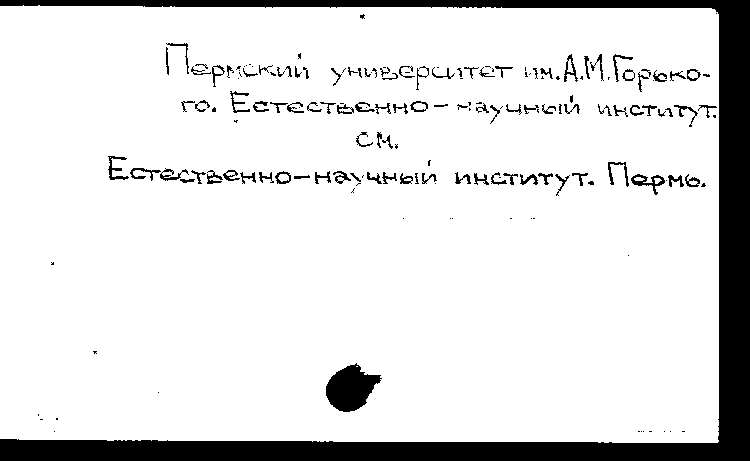 Пермский университет им. А.М. Горько-
го. Естественно-научный институт.
см.
Естественно-научный институт. Пермь.